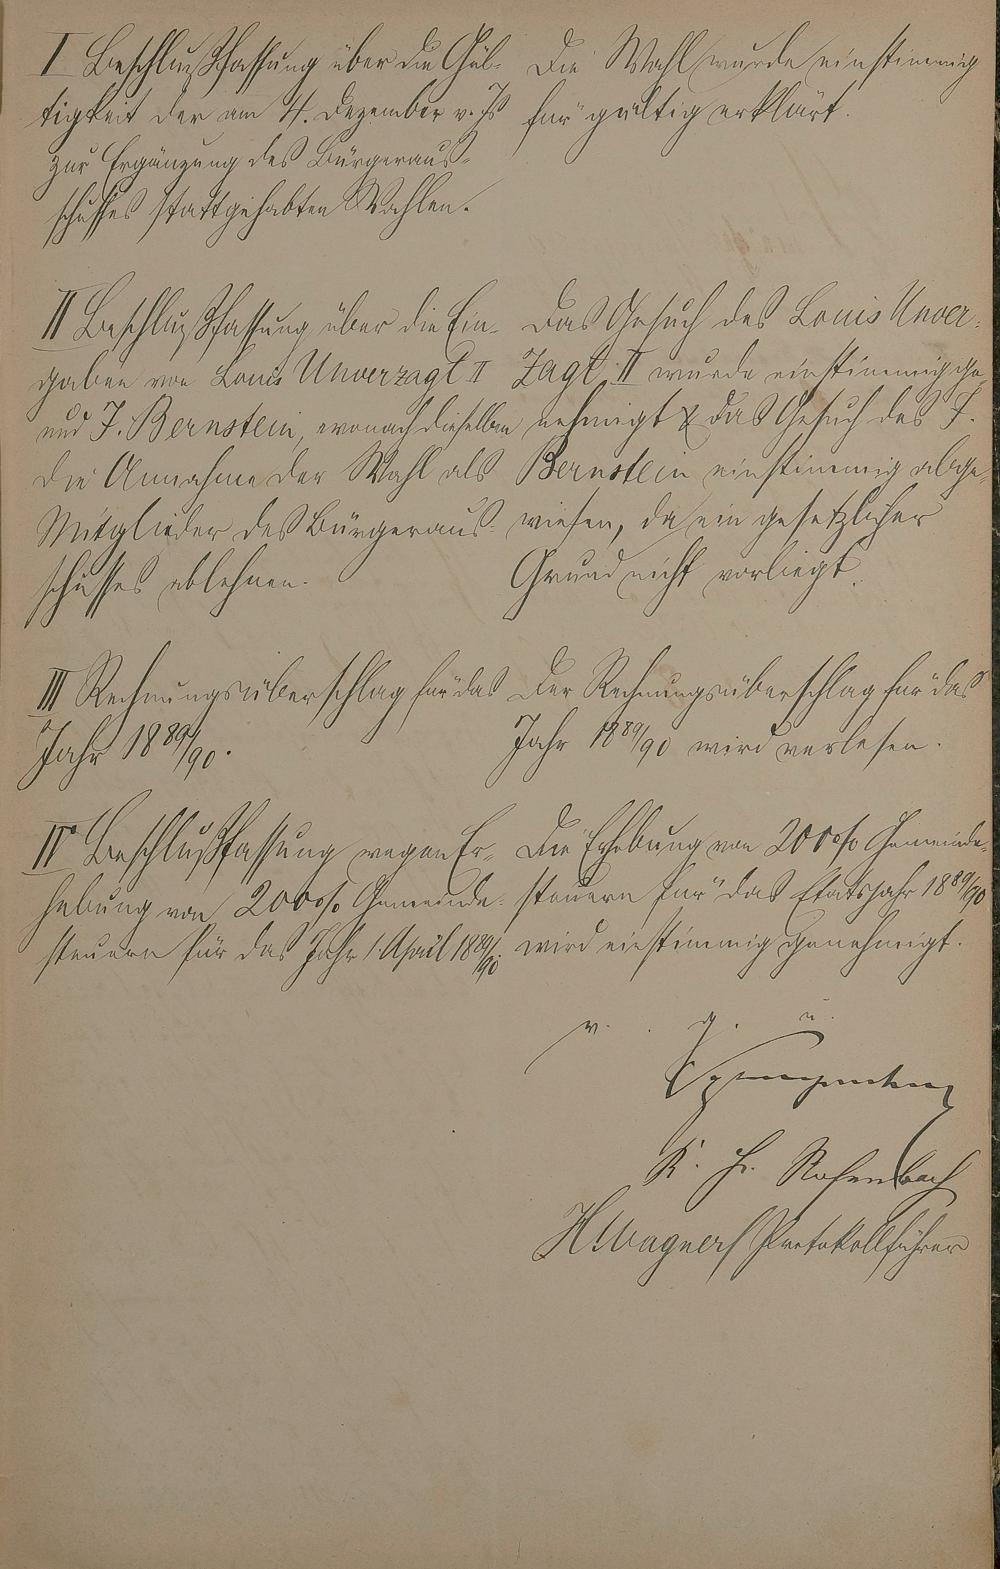 I Beschlußfassung über die Gül-
tigkeit der am 4. Dezember v. Js
zur Ergänzung des Bürgeraus-
schusses stattgehabten Wahlen.
Die Wahl wurde einstimmig
für gültig erklärt.
II Beschlußfassung über die Ein-
gaben von Louis Unverzagt II
und J. Bernstein, wonach dieselben
die Annahme der Wahl als
Mitglieder des Bürgeraus-
schusses ablehnen.
Das Gesuch des Louis Unver-
zagt II wurde einstimmig ge-
nehmigt & das Gesuch des J.
Bernstein einstimmig abge-
wiesen, da ein gesetzlicher
Grund nicht vorliegt.
III Rechnungsüberschlag für das
Jahr 1889/90.
Der Rechnungsüberschlag für das
Jahr 1889/90 wird verlesen.
IV Beschlußfassung wegen Er-
hebung von 200% Gemeinde-
steuern für das Jahr 1 April 1889/90.
Die Erhebung von 200% Gemeinde-
steuern für das Etatsjahr 1889/90
wird einstimmig genehmigt.
v. g. u.
K. Hr. Rosenbach
H Wagner Protokollführer